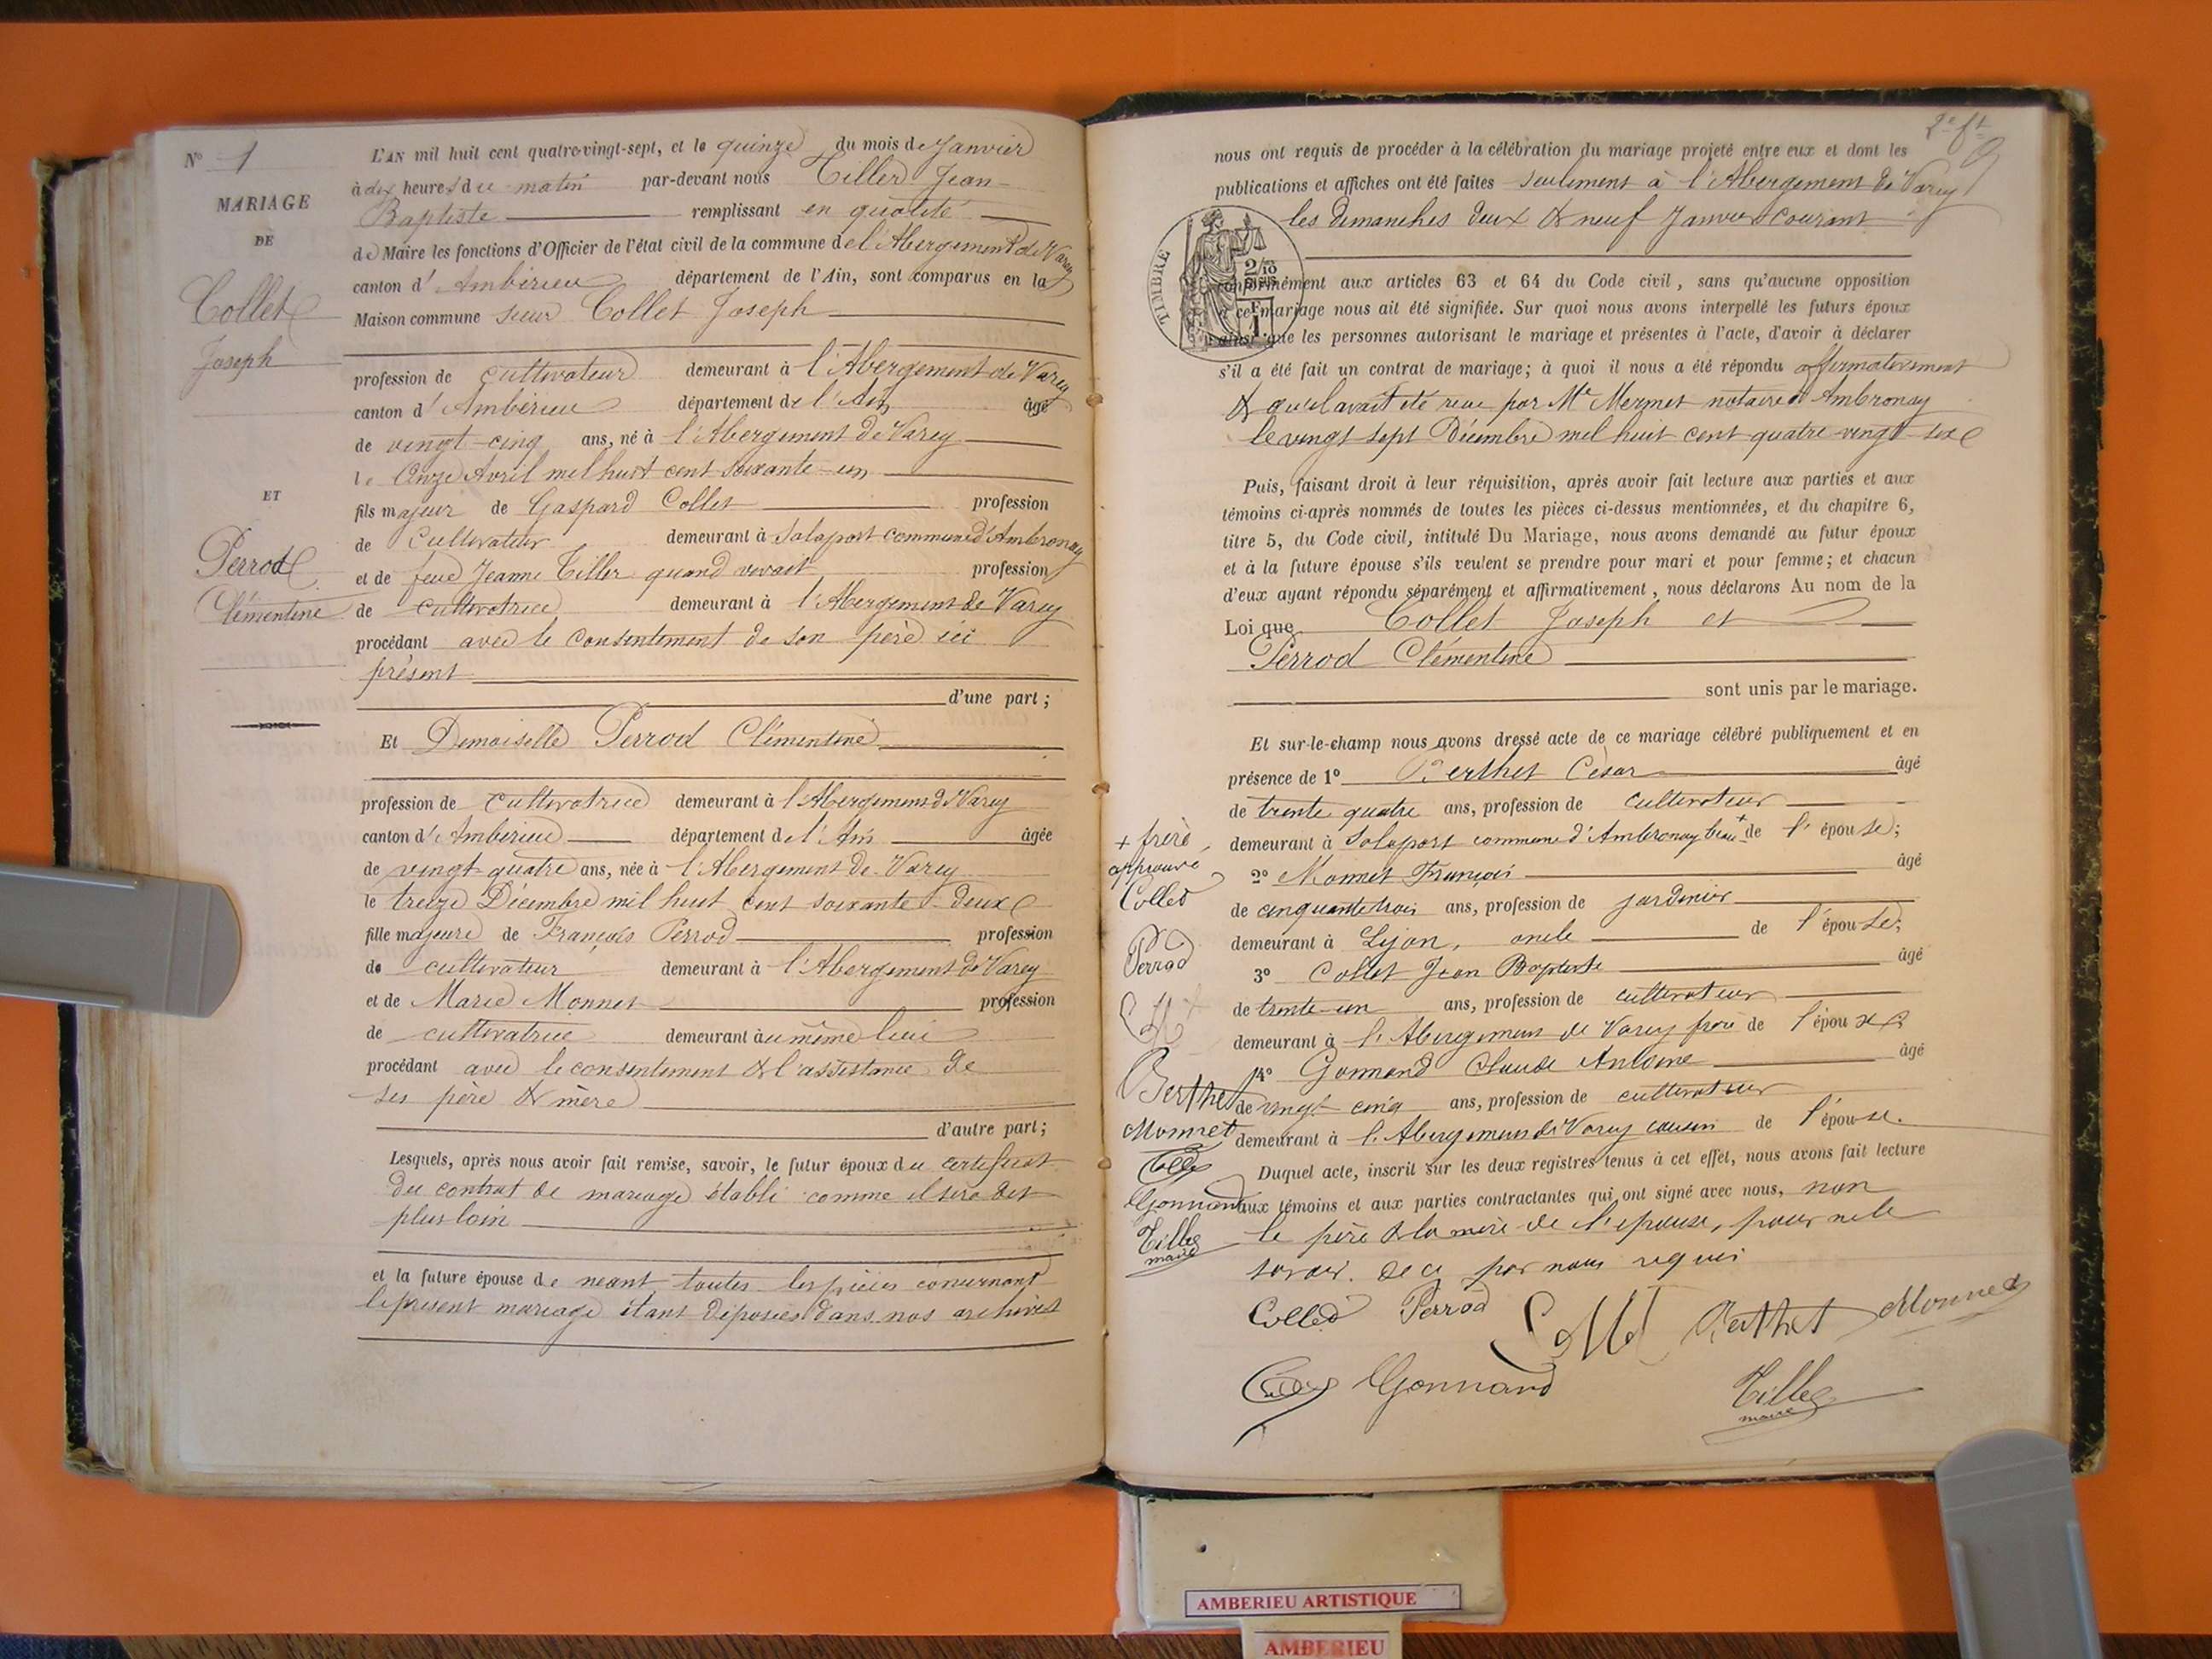 N° 1
MARIAGE
DE
Collet
Joseph
ET
Perrod
Clémentine
L'AN mil huit cent quatre-vingt-sept, et le quinze du mois de Janvier
à dix heures du matin par-devant nous Tiller Jean
Baptiste remplissant en qualité
de Maire les fonctions d'Officier de l'état civil de la commune de l'Abergement de Varey
canton d'Ambérieu département de l'Ain, sont comparus en la
Maison commune sieur Collet Joseph
profession de cultivateur demeurant à l'Abergement de Varey
canton d'Ambérieu département de l'Ain âgé
de vingt-cinq ans, né à l'Abergement de Varey
le Onze Avril mil huit cent soixante-un
fils majeur de Gaspard Collet profession
de Cultivateur demeurant à Salaport commune d'Ambronay
et de feue Jeanne Tiller quand vivait profession
de cultivatrice demeurant à l'Abergement de Varey
procédant avec le consentement de son père ici
présent
d'une part ;
Et Demoiselle Perrod Clémentine
profession de cultivatrice demeurant à l'Abergement de Varey
canton d'Ambérieu département de l'Ain âgée
de vingt quatre ans, née à l'Abergement de Varey
le treize Décembre mil huit cent soixante-deux
fille majeure de François Perrod profession
de cultivateur demeurant à l'Abergement de Varey
et de Marie Monnet profession
de cultivatrice demeurant au même lieu
procédant avec le consentement & l'assistance de
ses père & mère
d'autre part ;
Lesquels, après nous avoir fait remise, savoir, le futur époux du certificat
du contrat de mariage établi comme il sera dit
plus loin
et la future épouse de néant toutes les pièces concernant
le présent mariage étant déposées dans nos archives
2e ft
nous ont requis de procéder à la célébration du mariage projeté entre eux et dont les
publications et affiches ont été faites seulement à l'Abergement de Varey
les dimanches deux & neuf Janvier courant
TIMBRE
2/10
conformément aux articles 63 et 64 du Code civil, sans qu'aucune opposition
à ce mariage nous ait été signifiée. Sur quoi nous avons interpellé les futurs époux
ainsi que les personnes autorisant le mariage et présentes à l'acte, d'avoir à déclarer
s'il a été fait un contrat de mariage; à quoi il nous a été répondu affirmativement
& qu'il avait été reçu par Me Mermet notaire à Ambronay
le vingt sept Décembre mil huit cent quatre-vingt-six
Puis, faisant droit à leur réquisition, après avoir fait lecture aux parties et aux
témoins ci-après nommés de toutes les pièces ci-dessus mentionnées, et du chapitre 6,
titre 5, du Code civil, intitulé Du Mariage, nous avons demandé au futur époux
et à la future épouse s'ils veulent se prendre pour mari et pour femme; et chacun
d'eux ayant répondu séparément et affirmativement, nous déclarons Au nom de la
Loi que Collet Joseph et
Perrod Clémentine
sont unis par le mariage.
Et sur-le-champ nous avons dressé acte de ce mariage célébré publiquement et en
présence de 1° Berthet César âgé
de trente quatre ans, profession de cultivateur
demeurant à Salaport commune d'Ambronay beau + de l'épouse;
2° Monnet François âgé
de cinquante trois ans, profession de jardinier
demeurant à Lyon, oncle de l'épouse;
3° Collet Jean Baptiste âgé
de trente-un ans, profession de cultivateur
demeurant à l'Abergement de Varey frère de l'époux
4° Gonnand Claude Antoine âgé
de vingt cinq ans, profession de cultivateur
demeurant à l'Abergement de Varey cousin de l'épouse.
Duquel acte, inscrit sur les deux registres tenus à cet effet, nous avons fait lecture
aux témoins et aux parties contractantes qui ont signé avec nous, non
le père & la mère de l'épouse, pour ne le
savoir. de ce par nous requis
+ frère
approuvé
Collet
Perrod
Berthet
Monnet
Collet
Gonnand
Tiller
maire
Collet Perrod Collet Berthet Monnet
Collet Gonnand Tiller
maire
AMBERIEU ARTISTIQUE
AMBERIEU